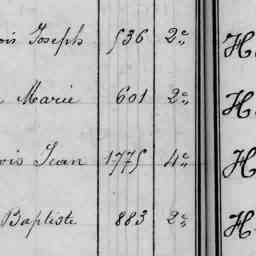 ois Joseph 536 2e H
Marie 601 2e H
ois Jean 1775 4e H
Baptiste 883 2e H